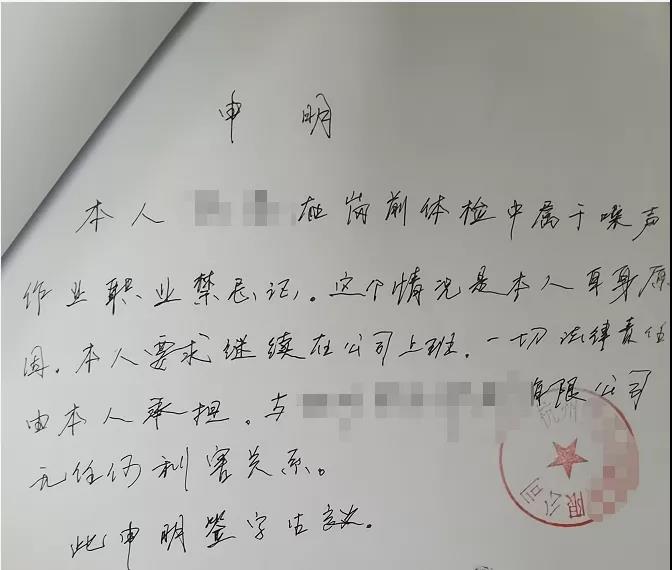 申明
本人 在岗前体检中属于噪声
作业职业禁忌证。这个情况是本人自身原
因。本人要求继续在公司上班。一切法律责任
由本人承担。与 有限公司
无任何利害关系。
此申明签字
杭州
限公司